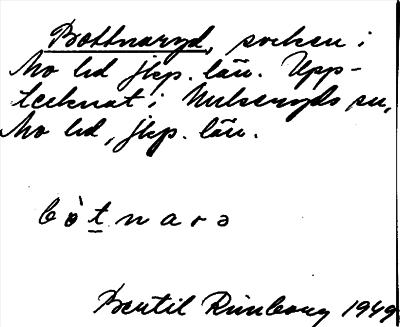 Bottnaryd, socken i
Mo hd jkp. län. Upp-
tecknat i Nulseryds sn,
Mo hd, jkp. län.
bòt̲narə
Bertil Rimborg 1949